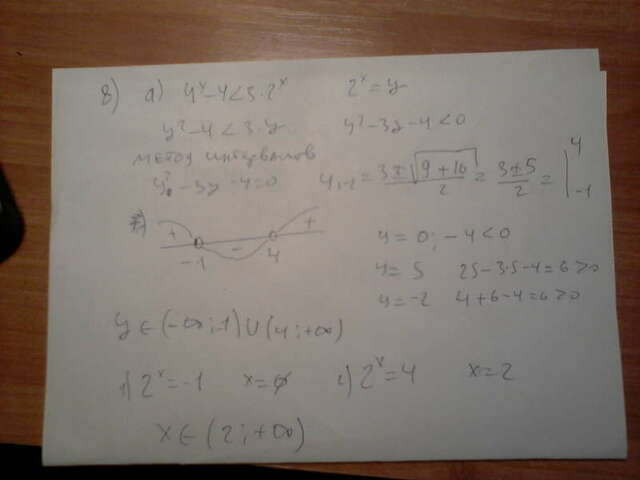 8) а) 4ˣ-4<3·2ˣ 2ˣ=y
y²-4<3·y y²-3y-4<0
метод интервалов
y²-3y-4=0 y₁,₂=3±√9+16/2=3±5/2=|4 -1
+ - +
-1 4
y=0; -4<0
y=5 25-3·5-4=6>0
y=-2 4+6-4=6>0
y∈(-∞;-1)∪(4;+∞)
1) 2ˣ=-1 x=∅ 2) 2ˣ=4 x=2
x∈(2;+∞)